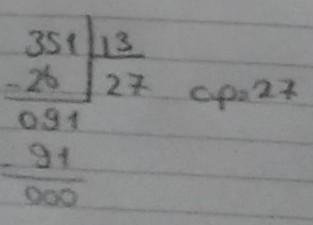 351 13
-26 27 c.p.=27
091
-91
000